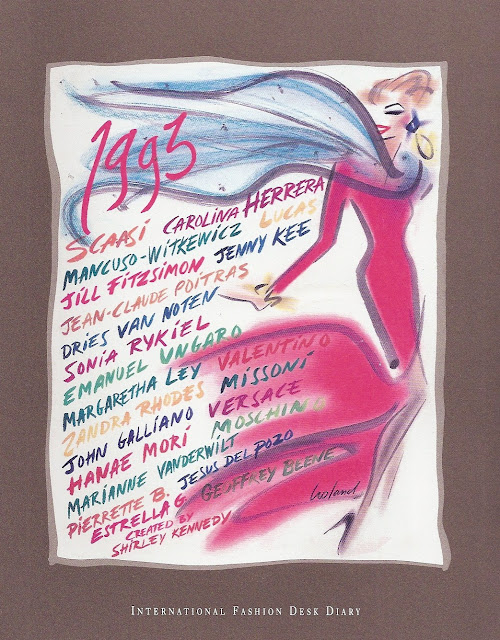 1993
SCAASI CAROLINA HERRERA
MANCUSO-WITKEWICZ LUCAS
JILL FITZSIMON JENNY KEE
JEAN-CLAUDE POITRAS
DRIES VAN NOTEN
SONIA RYKIEL
EMANUEL UNGARO
MARGARETHA LEY VALENTINO
ZANDRA RHODES MISSONI
JOHN GALLIANO VERSACE
HANAE MORI MOSCHINO
MARIANNE VANDERWILT
PIERRETTE B. JESUS DEL POZO
ESTRELLA G. GEOFFREY BEENE
CREATED BY
SHIRLEY KENNEDY
INTERNATIONAL FASHION DESK DIARY